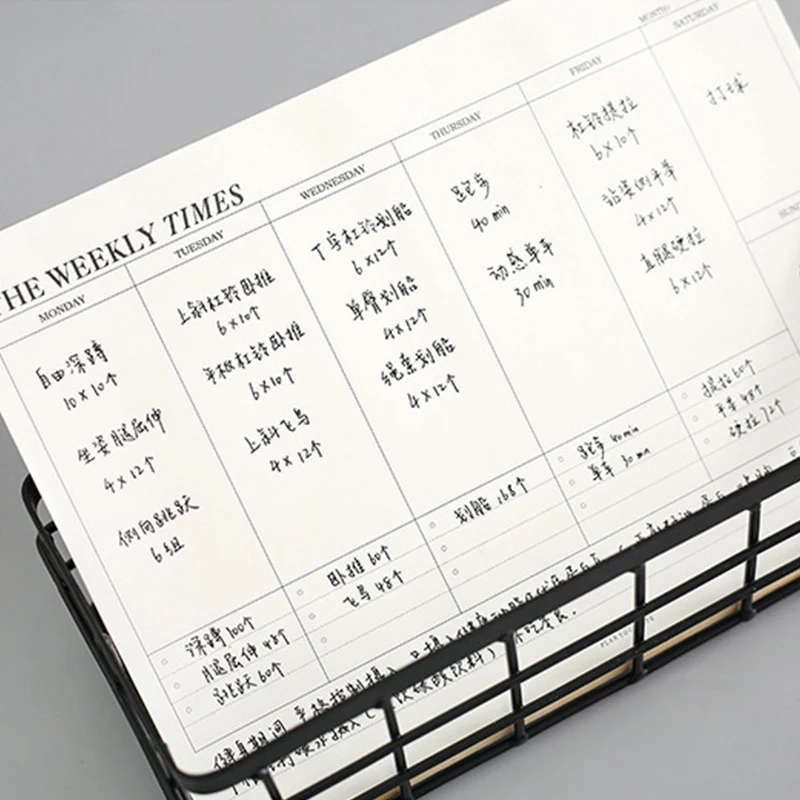 THE WEEKLY TIMES
MONTH:
MONDAY
自由深蹲
10×10个
坐姿腿屈伸
4×12个
侧向跳跃
6组
深蹲100个
腿屈伸48个
跳跃60个
TUESDAY
上斜杠铃卧推
6×10个
平板杠铃卧推
6×10个
上斜飞鸟
4×12个
卧推60个
飞鸟48个
WEDNESDAY
T字杠铃划船
6×12个
单臂划船
4×12个
绳索划船
4×12个
划船168个
THURSDAY
跑步
40 min
动感单车
30 min
跑步 40 min
单车 30 min
FRIDAY
杠铃提拉
6×10个
站姿侧平举
4×12个
直腿硬拉
6×12个
提拉60个
平举48个
硬拉72个
SATURDAY
打球
SUN
健身期间